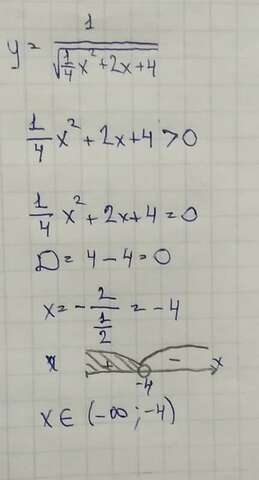 y = 1/√(1/4 x² + 2x + 4)
1/4 x² + 2x + 4 > 0
1/4 x² + 2x + 4 = 0
D = 4 - 4 = 0
x = - 2/(1/2) = -4
+ - x
-4
x ∈ (-∞; -4)